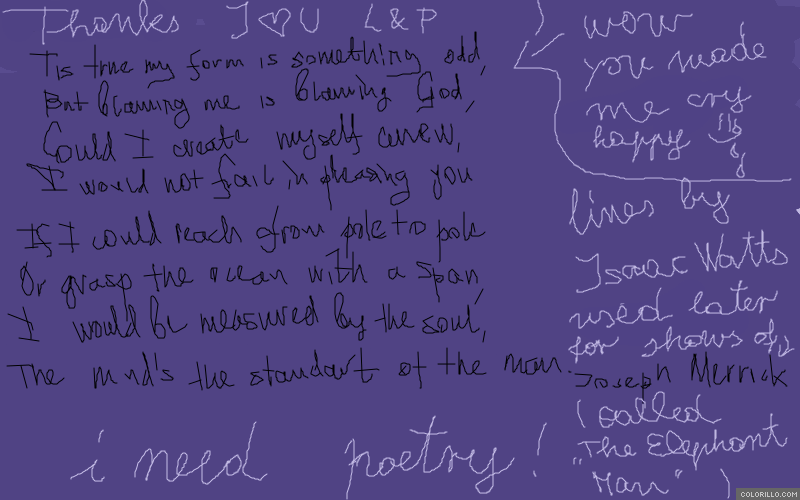 Thanks I ♡ U L & P
Tis true my form is something odd,
But blaming me is blaming God,
Could I create myself anew,
I would not fail in pleasing you
If I could reach from pole to pole
Or grasp the ocean with a span,
I would be measured by the soul,
The mind's the standart of the man.
i need poetry!
wow
you made
me cry
happy
lines by
Isaac Watts
used later
for shows of
Joseph Merrick
(called
"The Elephant
Man")
COLORILLO.COM